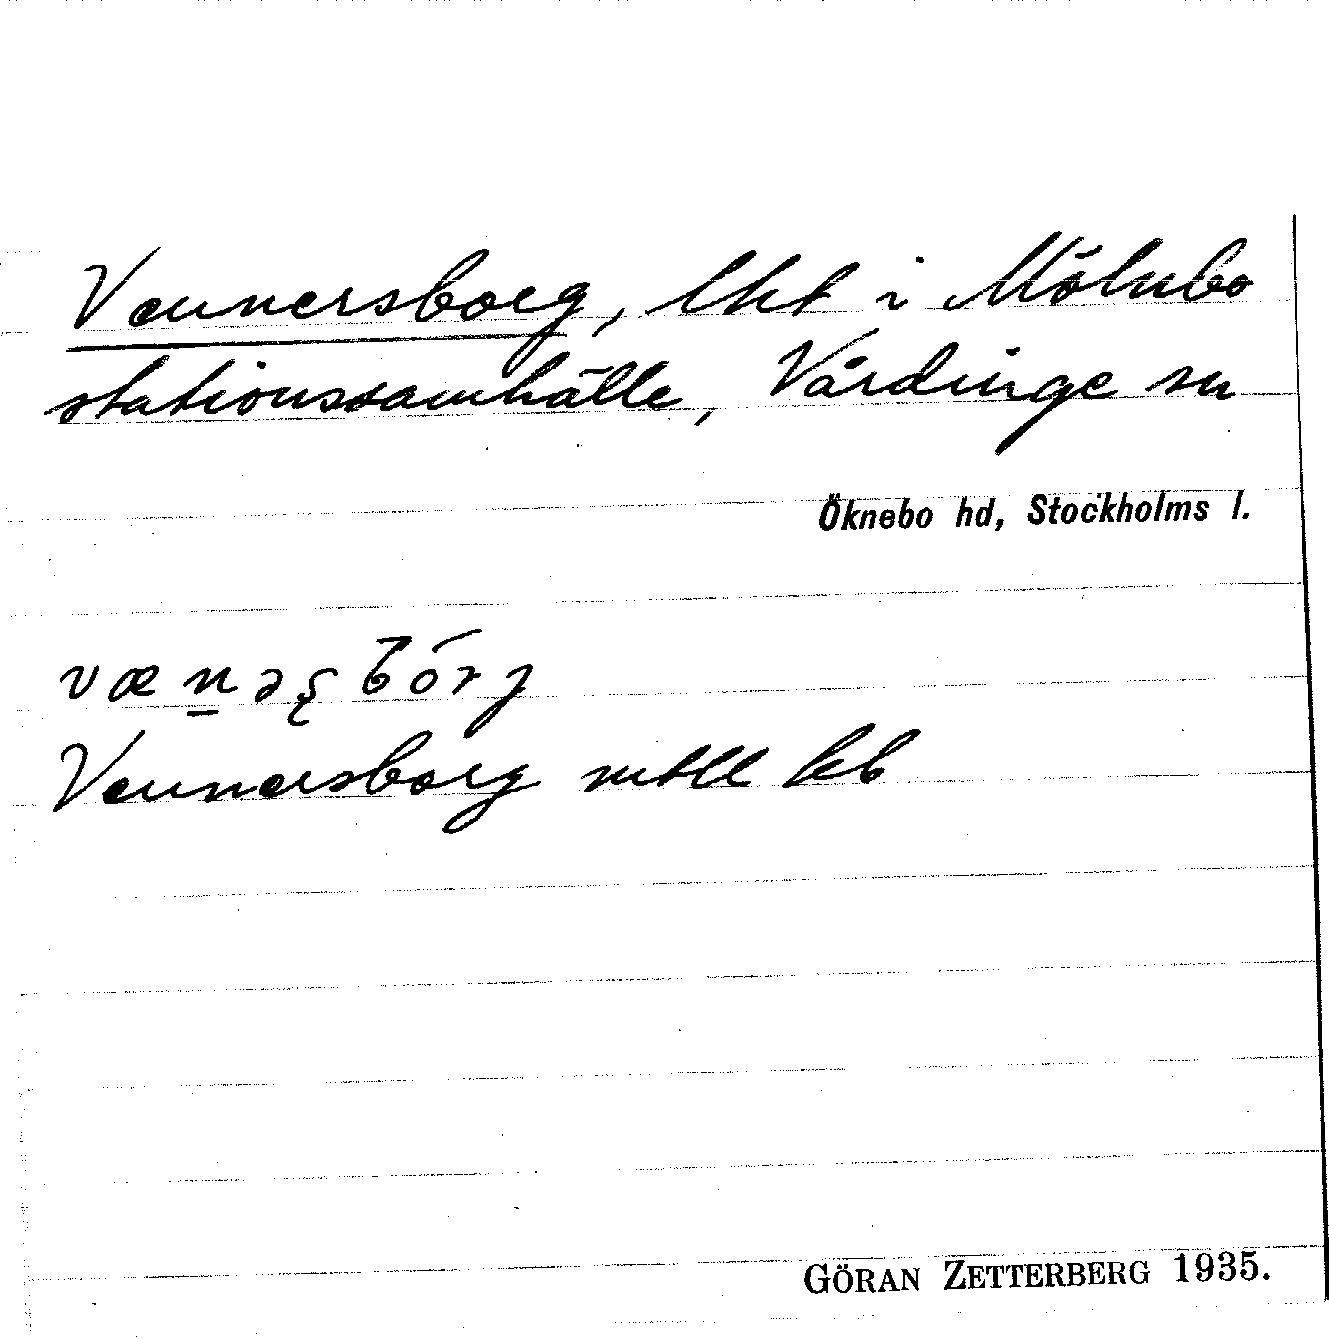 Vennersborg, lht i Mölnbo
stationssamhälle, Vårdinge sn
Öknebo hd, Stockholms l.
Vennersborg mtll kb
GÖRAN ZETTERBERG 1935.